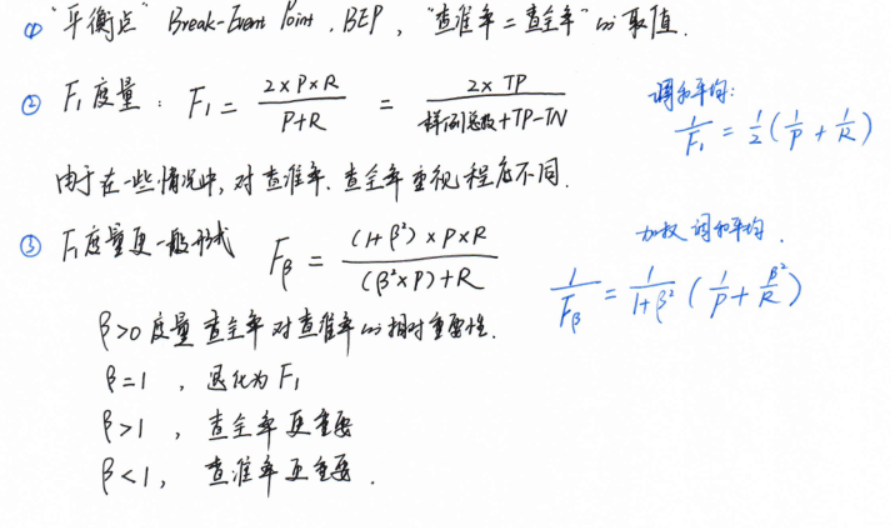 ① "平衡点" Break-Event Point, BEP, "查准率=查全率"的取值.
② F₁度量: F₁ = (2×P×R)/(P+R) = (2×TP)/(样例总数+TP-TN)
调和平均:
1/F₁ = 1/2(1/P + 1/R)
由于在一些情况中, 对查准率、查全率重视程度不同.
③ F₁度量更一般形式 F_β = ((1+β²)×P×R)/((β²×P)+R)
加权调和平均.
1/F_β = 1/(1+β²) (1/P + β²/R)
β>0度量查全率对查准率的相对重要性.
β=1, 退化为F₁
β>1, 查全率更重要
β<1, 查准率更重要.